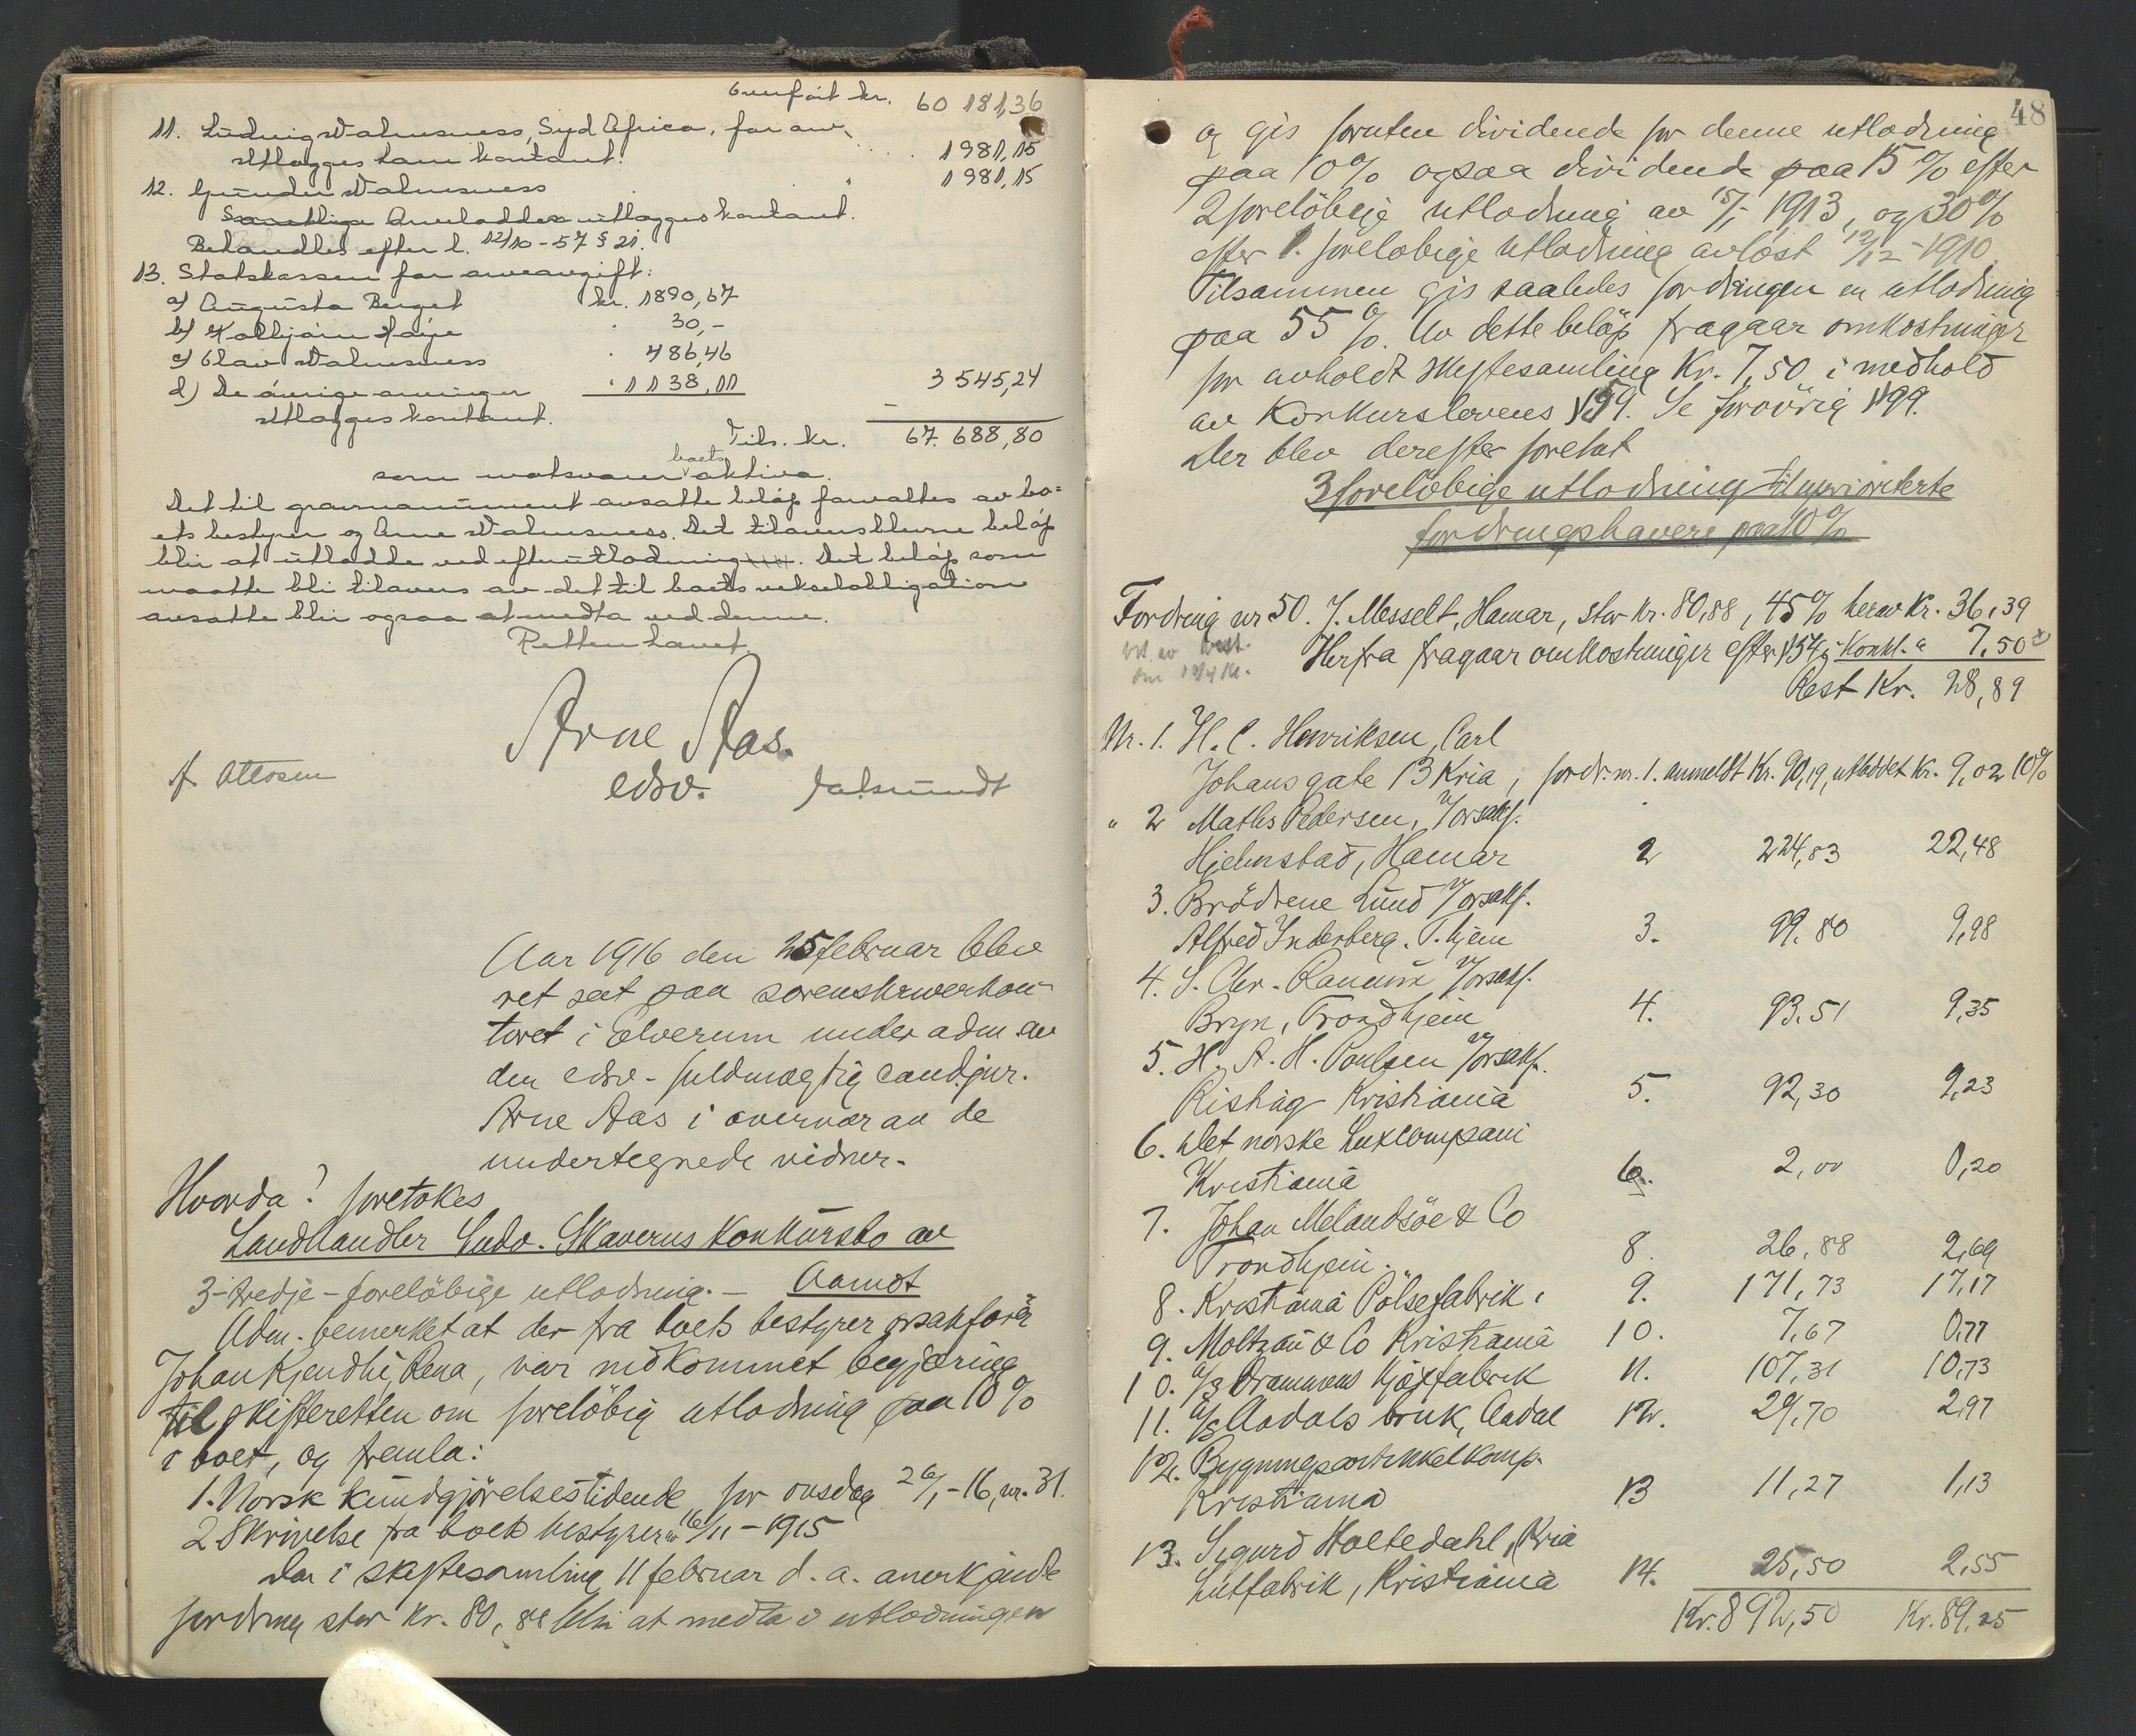 Overført kr. 60 181,36
11. Ludvig Malmsness, Syd Africa, for arv 1 981,15
utlægges ham kontant.
12. Gunder Malmsness " 1 981,15
Samtlige arvelodder utlægges kontant.
Behandles efter l. 12/10-57 § 21.
13. Statskassen for arveavgift:
a) Augusta Berget kr. 1890,67
b) Kolbjørn " 30,-
c) Olav Malmsness " 486,46
d) De øvrige arvinger " 1138,11 3 545,24
utlægges kontant.
Tils. kr. 67.688,80
som motsvarer boets aktiva.
Det til gravmonument avsatte beløp forvaltes av bo=
ets bestyrer og Arne Malmsness. Det tiloversblevne beløp
blir at utlodde ved efterutlodning. Det beløp som
maatte bli tilovers av det til boets vekselobligation
avsatte blir ogsaa at medta ved denne.
Retten hævet.
Arne Aas.
edsv.
A. Ottosen
Aar 1916 den 25 februar blev
ret sat paa sorenskriverkon-
toret i Elverum under adm. av
den edsv. fuldmægtig cand.jur.
Arne Aas i overvær av de
undertegnede vidner.
Hvorda! foretokes
Landhandler Ludv. Skaverns konkursbo av
3-tredje-foreløbige utlodning. - Aamot
Adm. bemerket at der fra boets bestyrer o.r.sakfører
Johan Kjendlie, Rena, var indkommet begjæring
til skifteretten om foreløbig utlodning paa 10%
i boet, og fremla:
1. Norsk kundgjørelsestidende for onsdag 26/1-16, nr. 31.
2 Skrivelse fra boets bestyrer av 16/11-1915
Den i skiftesamling 11 februar d.a. anerkjendte
fordring stor kr. 80,88 blir at medta i utlodningen
48
og gis foruten dividende for denne utlodning
paa 10% ogsaa dividende paa 15% efter
2 foreløbige utlodning av 15/1-1913, og 30%
efter 1. foreløbige utlodning avløst 12/12-1910
Tilsammen gis saaledes fordringen en utlodning
paa 55%. Av dette beløp fragaar omkostninger
for avholdt skiftesamling Kr. 7,50 i medhold
av Konkurslovens § 59. Se forøvrig § 99.
Der blev derefter foretat
3 foreløbige utlodning til uprioriterte
fordringshavere paa 10%
Fordring nr 50. J. Messelt, Hamar, stor kr. 80,88, 45% herav kr. 36,39
Herfra fragaar omkostninger efter § 54 i Konkl. " 7,50
Rest Kr. 28,89
Nr. 1. H. C. Henriksen, Carl
Johans gate 13 Kria, fordr. nr. 1. anmeldt Kr. 90,19, utloddet Kr. 9,02 10%
" 2 Maths Pedersen, v/orsakf.
Hjelmstad, Hamar 2 224,83 22,48
3. Brødrene Lund v/orsakf.
Alfred Inderberg. T.hjem 3. 99.80 9,98
4. S. Chr. v/orsakf.
Bryn, Trondhjem 4. 93.51 9,35
5. H. A. H. Poulsen v/orsakf.
Kristiania 5. 92,30 9,23
6. Det norske Luxcompani
Kristiania 6. 2,00 0,20
7. Johan Melandsøe & Co
Trondhjem. 8. 26,88 2,69
8. Kristiania Pølsefabrik. 9. 171,73 17,17
9. Moltzau & Co Kristiania 10. 7,67 0,77
10. A/S Drammens Kjæxfabrik 11. 107,31 10,73
11. A/S Aadals bruk, Aadal 12. 29,70 2,97
12. Bygningsartikkelkomp.
Kristiania 13 11,27 1,13
13. Sigurd Holtedahl, Kria
Lutfabrik, Kristiania 14. 25,50 2,55
Kr. 892,50 Kr. 89,25